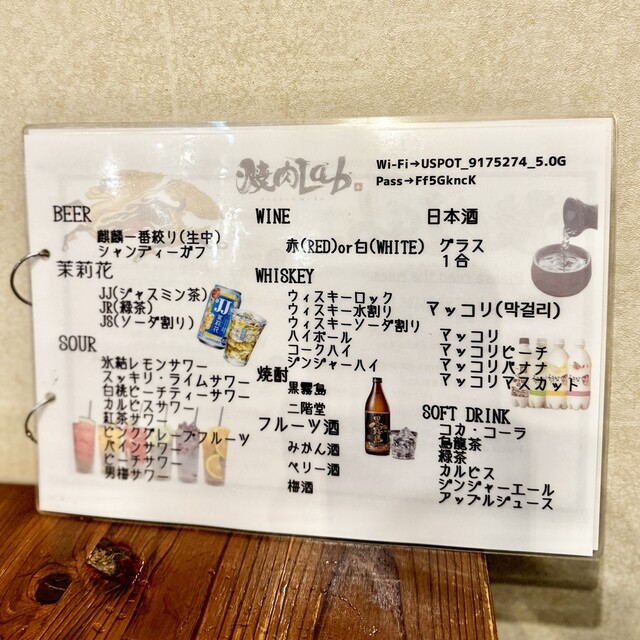 焼肉Lab
Wi-Fi→USPOT_9175274_5.0G
Pass→Ff5GkncK
BEER
麒麟一番絞り(生中)
シャンディーガフ
茉莉花
JJ(ジャスミン茶)
JR(緑茶)
JS(ソーダ割り)
SOUR
氷結レモンサワー
スッキリ・ライムサワー
白桃ピーチティーサワー
カルピスサワー
紅茶サワー
ピンクグレープフルーツ
パインサワー
ピーチサワー
男梅サワー
WINE
赤(RED)or白(WHITE)
WHISKEY
ウィスキーロック
ウィスキー水割り
ウィスキーソーダ割り
ハイボール
コークハイ
ジンジャーハイ
焼酎
黒霧島
二階堂
フルーツ酒
みかん酒
ベリー酒
梅酒
日本酒
グラス
1合
マッコリ(막걸리)
マッコリ
マッコリピーチ
マッコリバナナ
マッコリマスカット
SOFT DRINK
コカ・コーラ
烏龍茶
緑茶
カルピス
ジンジャーエール
アップルジュース
JJ